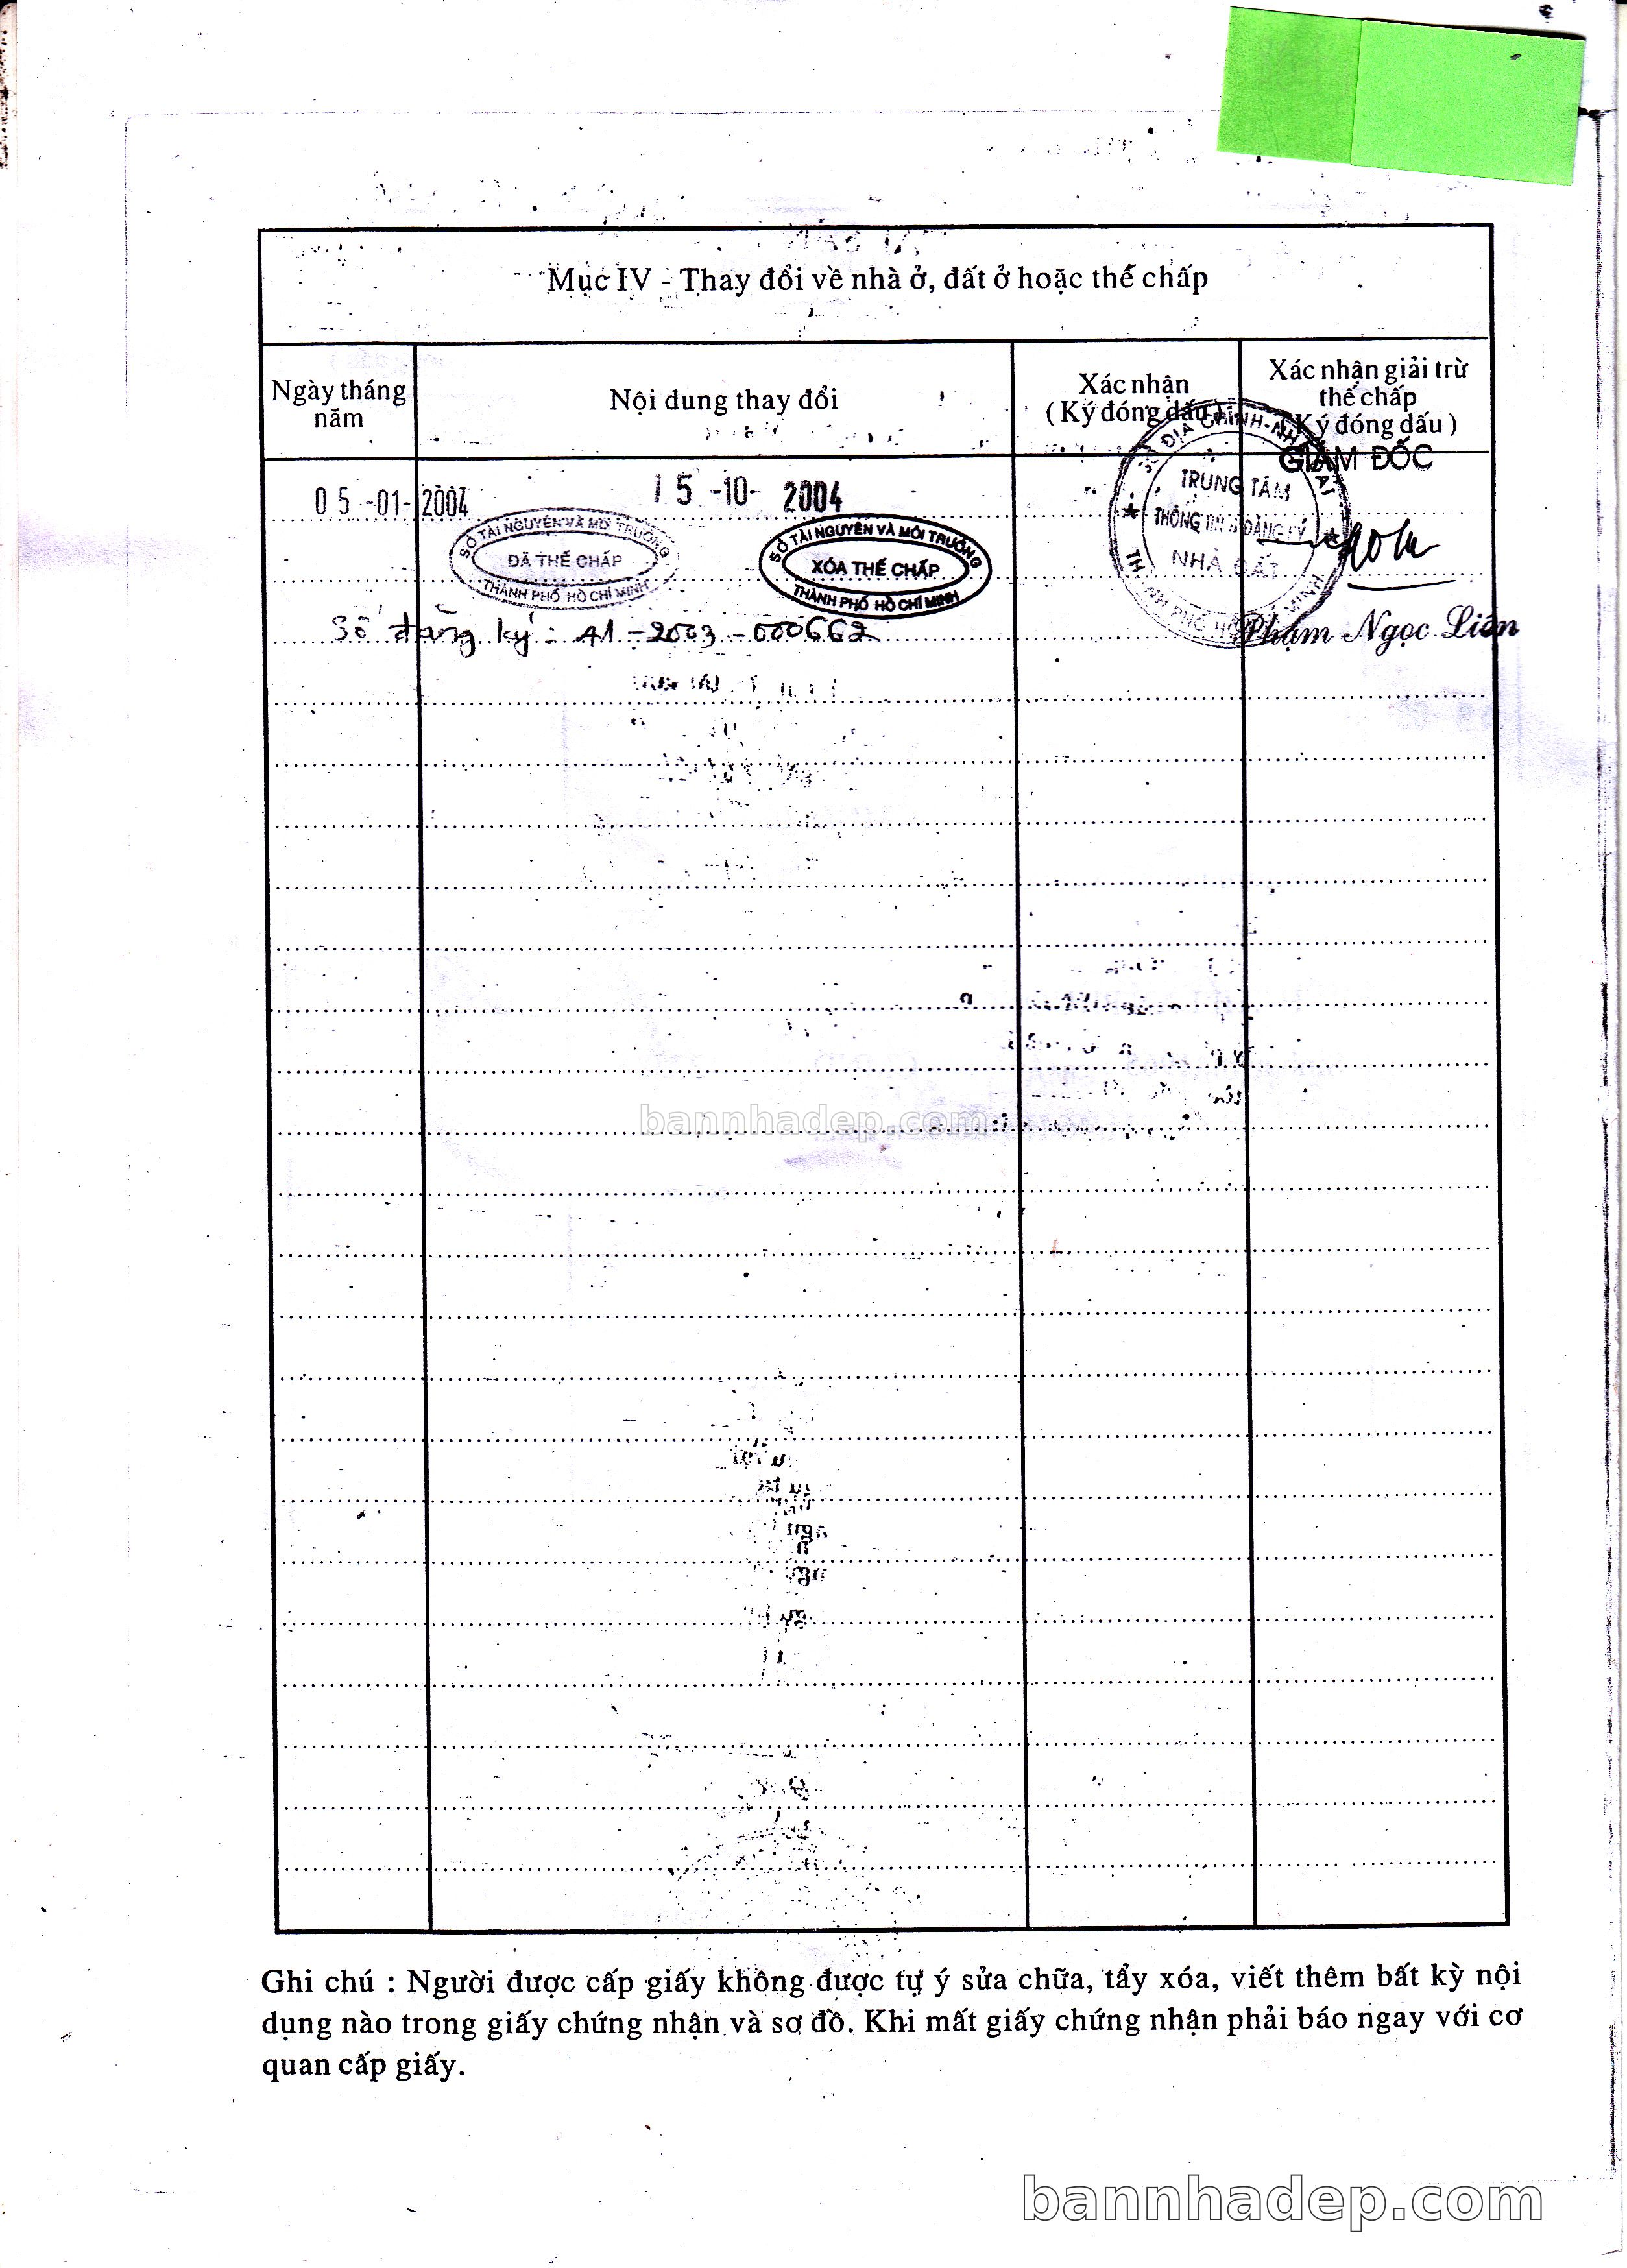 Mục IV - Thay đổi về nhà ở, đất ở hoặc thế chấp
Ngày tháng
năm
Nội dung thay đổi
Xác nhận
( Ký đóng dấu )
Xác nhận giải trừ
thế chấp
( Ký đóng dấu )
GIÁM ĐỐC
05 -01- 2004
15 -10- 2004
SỞ TÀI NGUYÊN VÀ MÔI TRƯỜNG
ĐÃ THẾ CHẤP
THÀNH PHỐ HỒ CHÍ MINH
SỞ TÀI NGUYÊN VÀ MÔI TRƯỜNG
XÓA THẾ CHẤP
THÀNH PHỐ HỒ CHÍ MINH
SỞ ĐỊA CHÍNH-NHÀ ĐẤT
TRUNG TÂM
THÔNG TIN ĐĂNG KÝ
NHÀ ĐẤT
THÀNH PHỐ HỒ CHÍ MINH
Số đăng ký : 41 - 2003 - 000662
Phạm Ngọc Liên
bannhadep.com
Ghi chú : Người được cấp giấy không được tự ý sửa chữa, tẩy xóa, viết thêm bất kỳ nội
dung nào trong giấy chứng nhận và sơ đồ. Khi mất giấy chứng nhận phải báo ngay với cơ
quan cấp giấy.
bannhadep.com